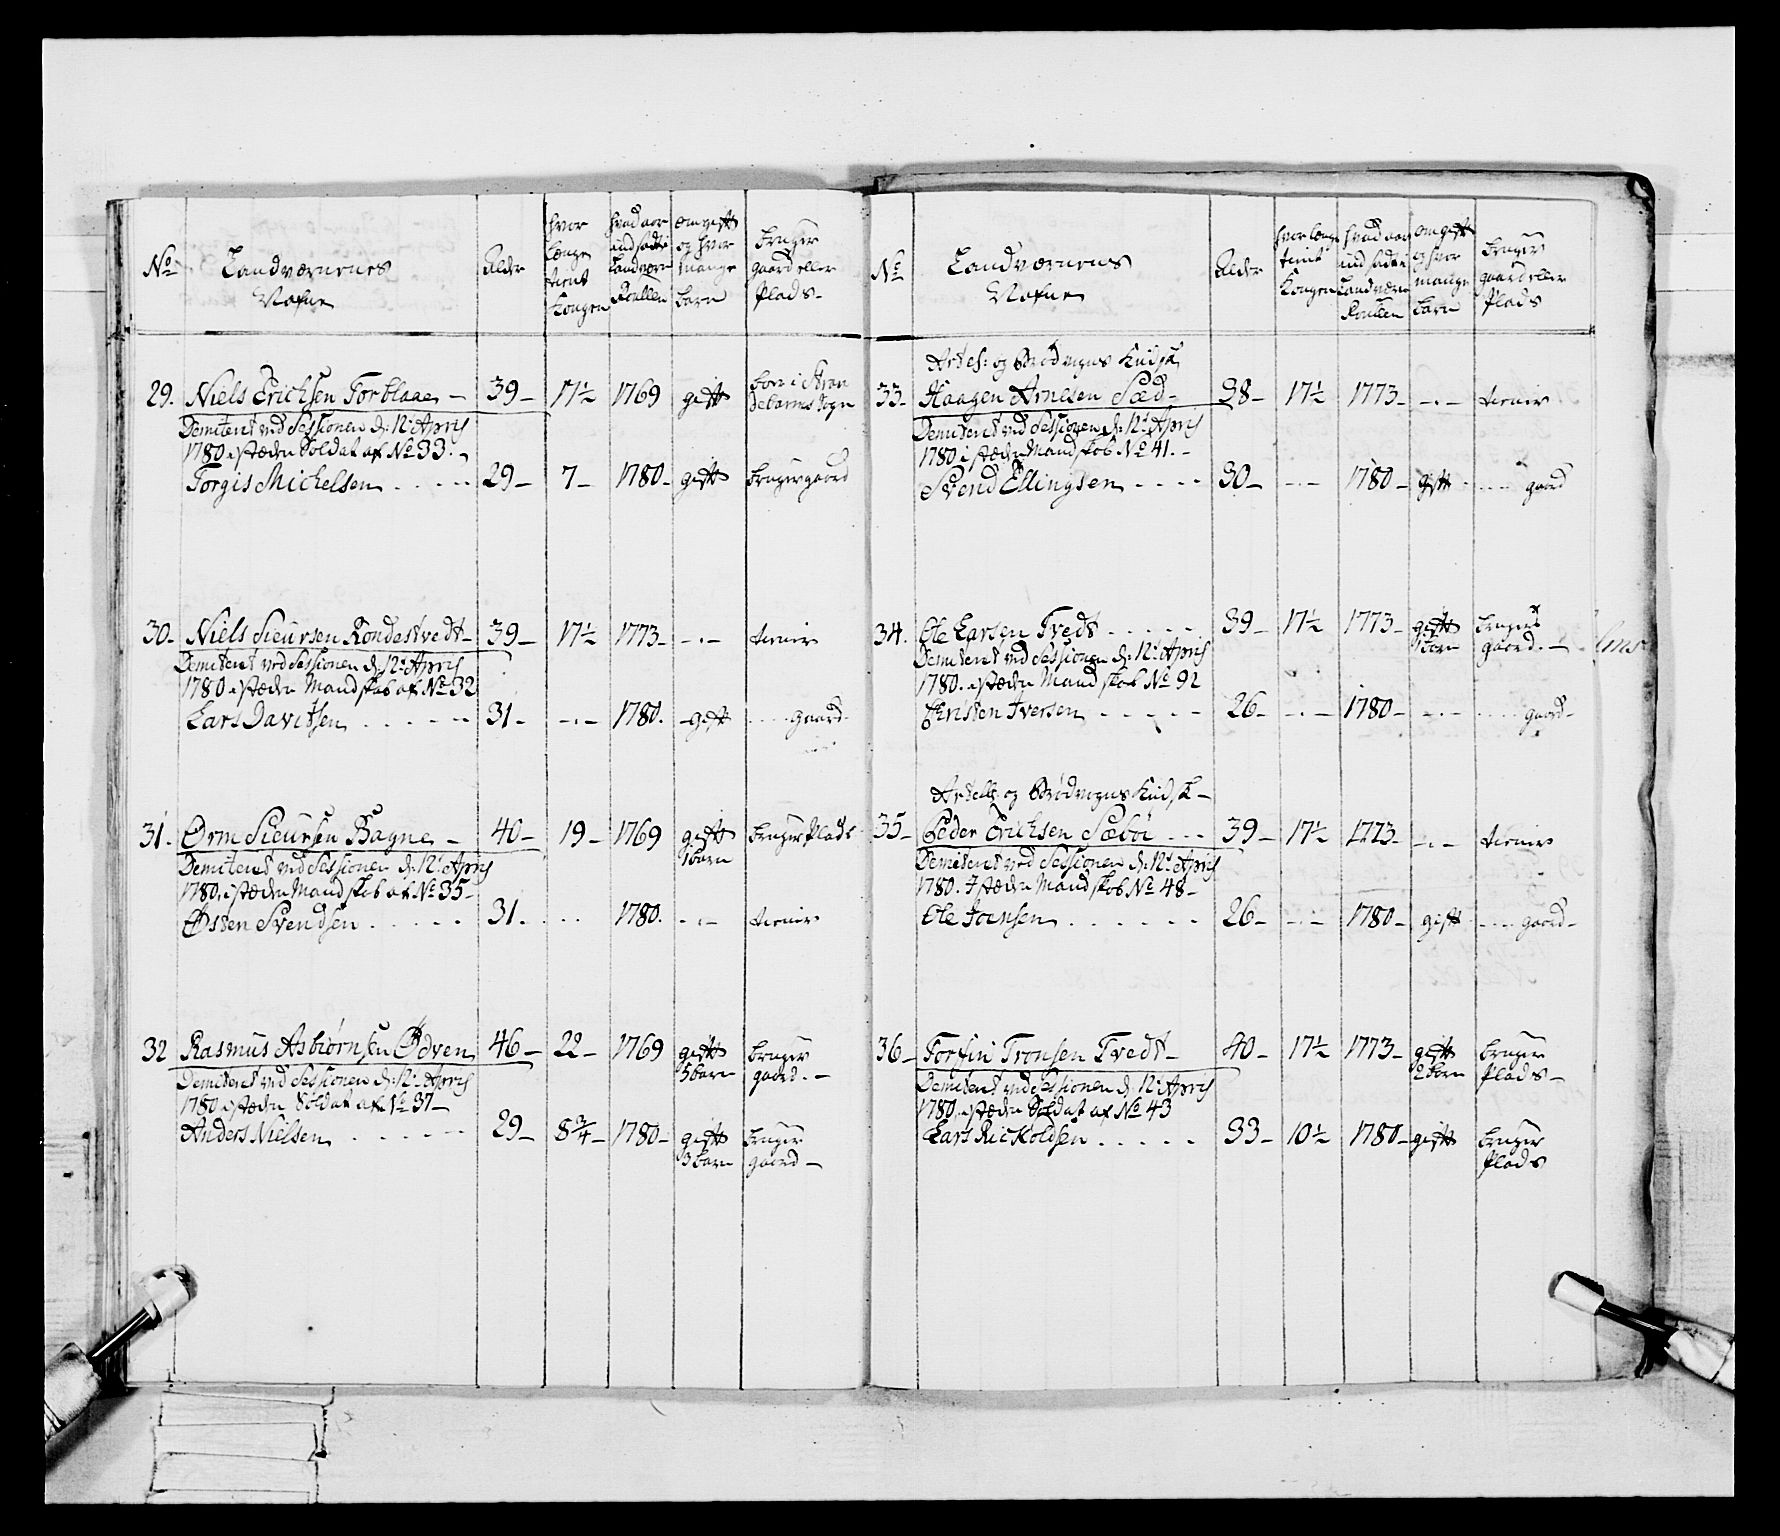 No
Landværnenes
Nafne
Alder
hvor
længe
tient
Kongen
hvad aar
ind sadt i
Landværn
Roullen
om gift
og hvor
mange
barn
bruger
gaard eller
Plads
29. Niels Erichsen Torblaae 39 17½ 1769 gift boer i Stran
debarms Sogn
Demiteret ved Sessionen d: 12t April
1780 i stæden Soldat af No 33.
Torgis Michelsen 29 7 1780 gift bruger gaard
30 Niels Sieursen Rondestvedt 39 17½ 1773 - tiener
Demiteret ved Sessionen d: 12t April
1780 i stæden Mandskab af No 32
Lars Davitsen 31 - 1780. gift gaard
31. Orm Sieursen Bagne 40 19 1769 gift bruger Plads
1 barn
Demiteret ved Sessionen d: 12t April
1780. i stæden Mandskab af No 35
Østen Svendsen 31. 1780. - tiener
32 Rasmus Asbiørnsen Ødven 46 22 1769 gift bruger
5 barn gaard.
Demiteret ved Sessionen d: 12t April
1780 i stæden Soldat af No 37
Anders Nielsen 29 8¾ 1780 gift bruger
3 barn gaard
No
Landværnens
Nafne
Alder
hvor længe
tient
Kongen
hvad aar
ind sadt i
Landværn
Roullen
om gift
og hvor
mange
barn
bruger
gaard eller
Plads
og Brødvogns Kudsk
33 Haagen Arnesen Sæd 38 17½ 1773 - tiener
Demiteret ved Sessionen d: 12t April
1780 i stæden Mandskab No 41.
Svend Ellingsen 30 - 1780 gift gaard
34. Ole Larsen Tvedt 39 17½ 1773 gift bruger
1 barn gaard.
Demiteret ved Sessionen d: 12t April
1780. i stæden Mandskab No 92
Christen Iversen 26 - 1780 - gaard
og Brødvogns Kudsk
35 Peder Erichsen Sæbøe 39 17½ 1773 - tiener
Demiteret ved Sessionen d: 12t April
1780. I stæden Mandskab No 48
Ole Joensen 26 - 1780 gift gaard
36 Torfin Tronsen Tvedt 40 17½ 1773 gift bruger
2 barn Plads
Demiteret ved Sessionen d: 12t April
1780. i stæden Soldat af No 43
Lars Rickoldsen 33 10½ 1780 gift bruger
Plads